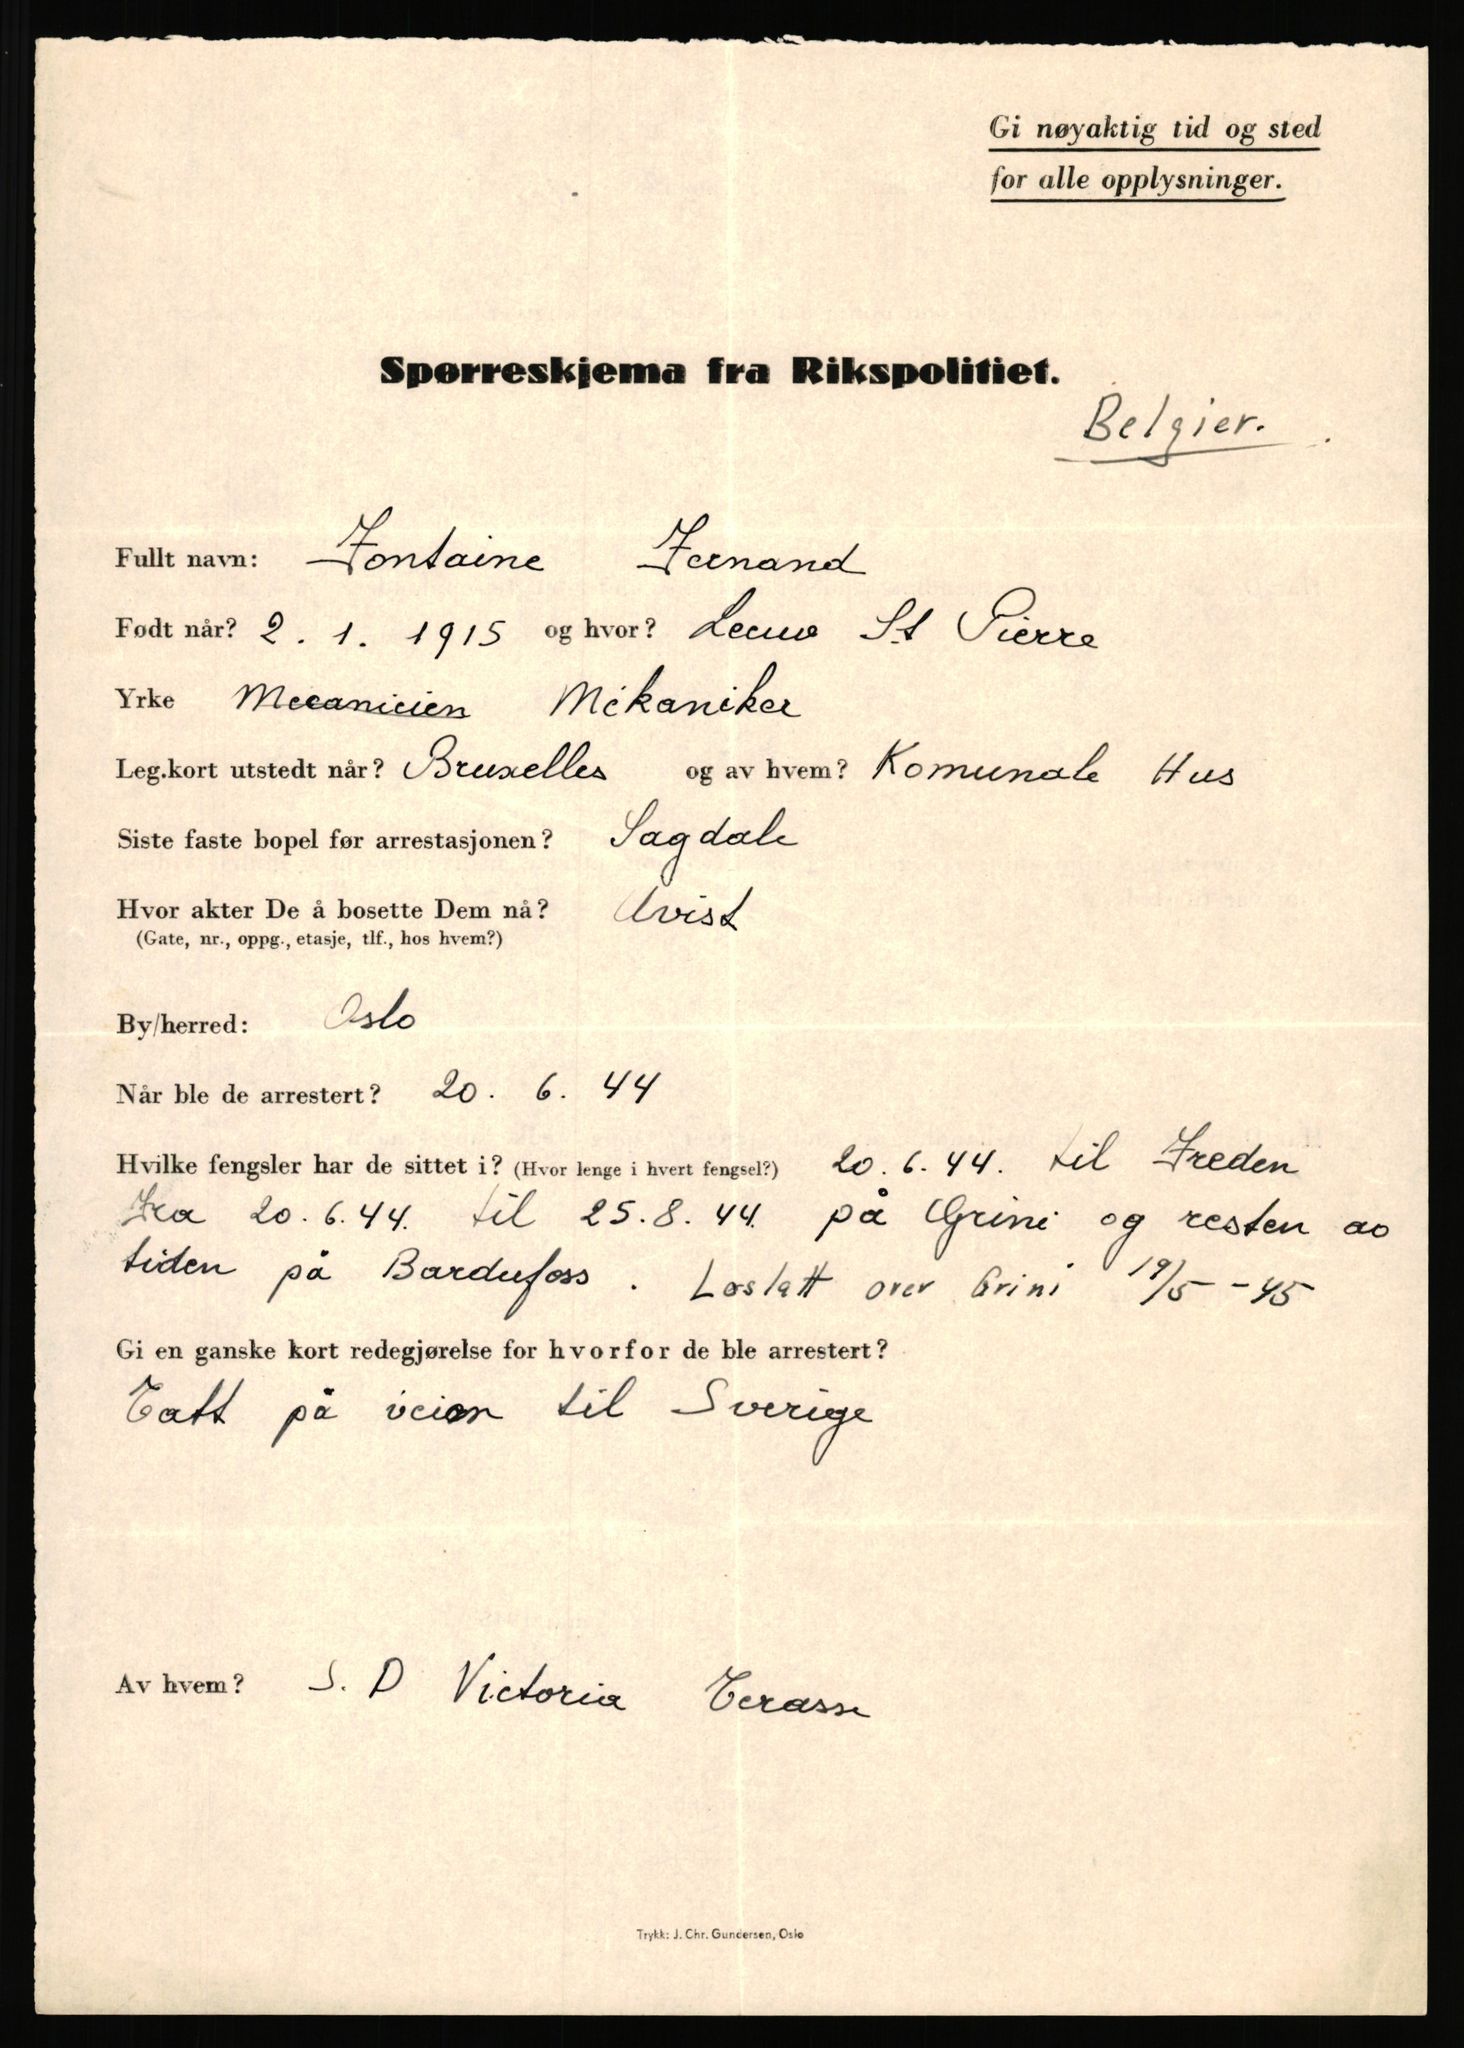 Gi nøyaktig tid og sted
for alle opplysninger.
Spørreskjema fra Rikspolitiet.
Belgier.
Fullt navn: Fontaine Fernand
Født når? 2. 1. 1915 og hvor? Leeuw St Pierre
Yrke Mecanicien Mekaniker
Leg.kort utstedt når? Bruxelles og av hvem? Komunale Hus
Siste faste bopel før arrestasjonen? Sagdale
Hvor akter De å bosette Dem nå? Uvist
(Gate, nr., oppg., etasje, tlf., hos hvem?)
By/herred: Oslo
Når ble de arrestert? 20. 6. 44
Hvilke fengsler har de sittet i? (Hvor lenge i hvert fengsel?) 20. 6. 44. til Freden
Fra 20. 6. 44. til 25. 8. 44. på Grini og resten av
tiden på Bardufoss. Løslatt over Grini 19/5 - 45
Gi en ganske kort redegjørelse for hvorfor de ble arrestert?
Tatt på veien til Sverige
Av hvem? S. D Victoria Terasse
Trykk: J. Chr. Gundersen, Oslo